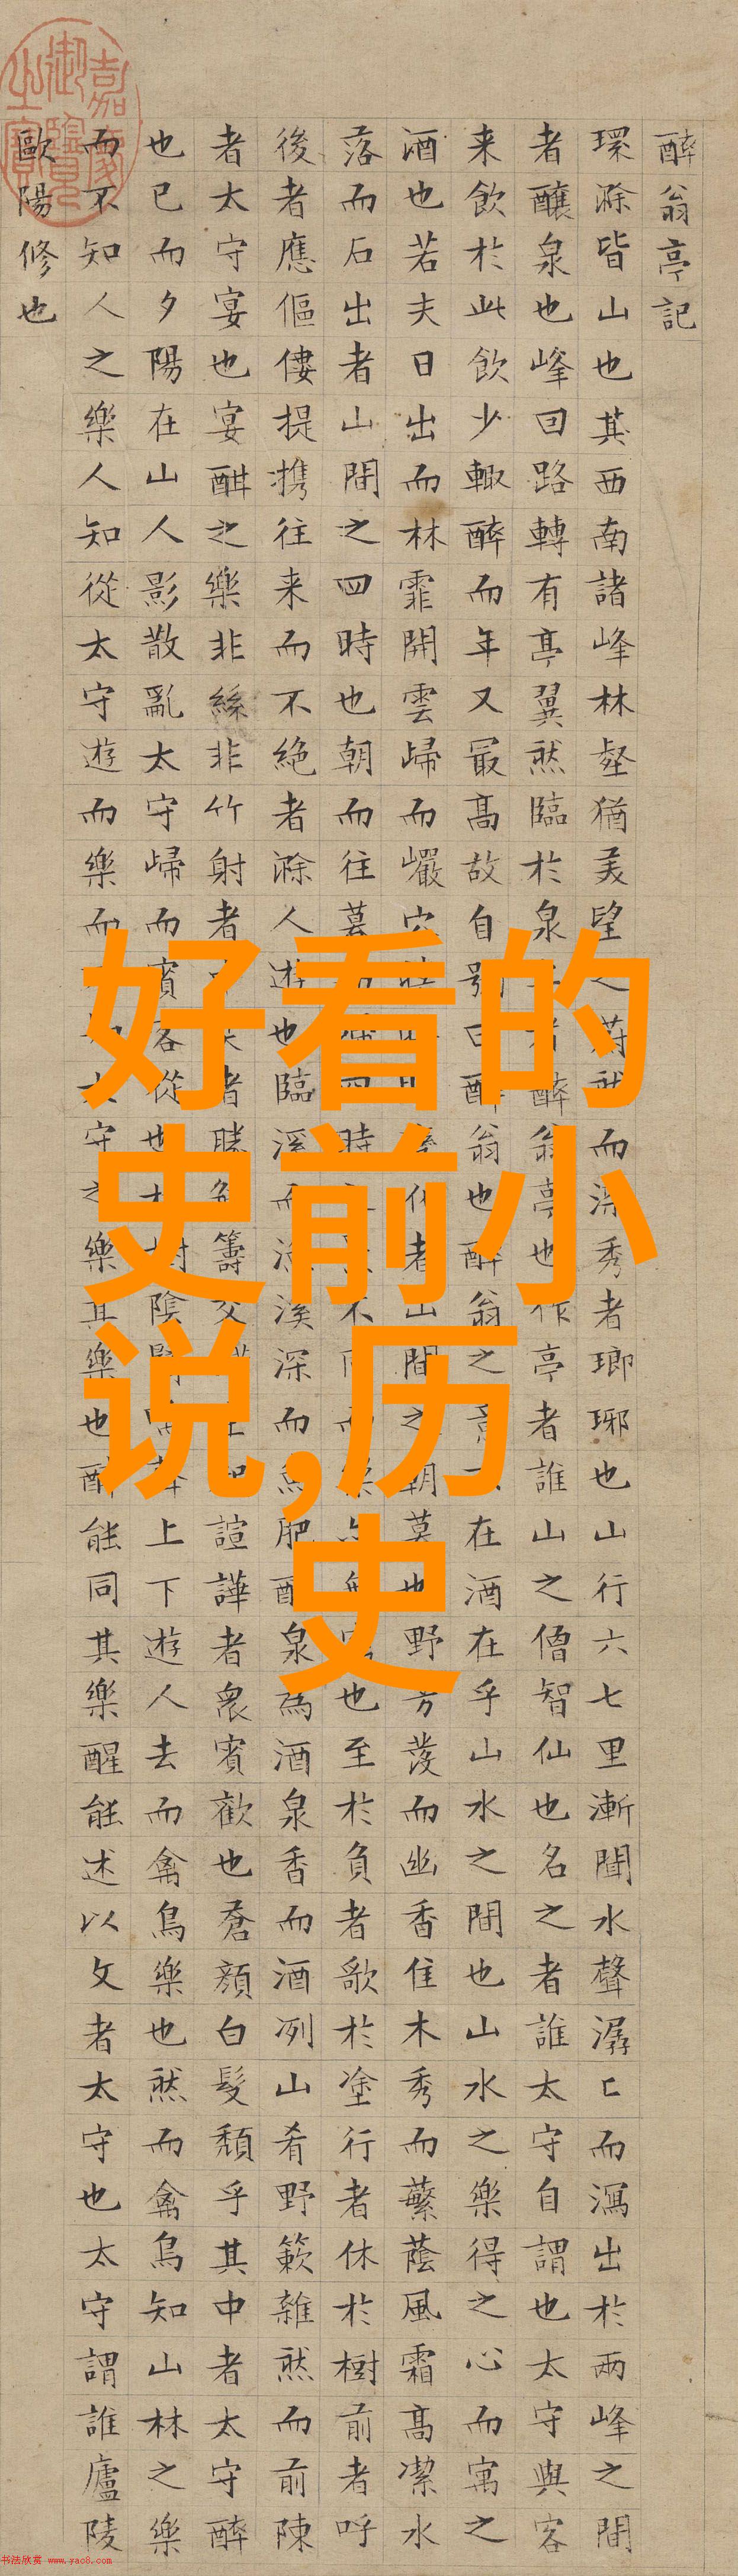 醉翁亭記
環滁皆山也其西南諸峰林壑猶美望之蔚然而深秀者瑯琊也山行六七里漸聞水聲潺〻而瀉出於兩峰之間
者釀泉也峰回路轉有亭翼然臨於泉者醉翁亭也作亭者誰山之僧智仙也名之者誰太守自謂也太守與客
来飲於此飲少輒醉而年又最高故自號曰醉翁也醉翁之意在酒在乎山水之間也山水之樂得之心而寓之
酒也若夫日出而林霏開雲歸而巖穴化者山間之朝暮也野芳發而幽香佳木秀而蘩蔭風霜高潔水
落而石出者山間之四時也朝而往暮四時不同而樂也至於負者歌於塗行者休於樹前者呼
後者應傴僂提攜往来而不絶者滁人遊也臨溪而漁溪深而魚肥釀泉為酒泉香而酒冽山肴野簌雜然而前陳
者太守宴也宴酣之樂非絲非竹射者者勝籌交諠譁者衆賓歡也蒼顔白髮頹乎其中者太守醉
也已而夕陽在山人影散亂太守歸而賓客從也樹陰上下遊人去而禽鳥樂也然而禽鳥知山林之樂
而不知人之樂人知從太守遊而樂而太守之樂其樂也醉能同其樂醒能述以文者太守也太守謂誰廬陵
歐陽修也
好看的
史前小
说,历
史
书法欣赏 www.yac8.com